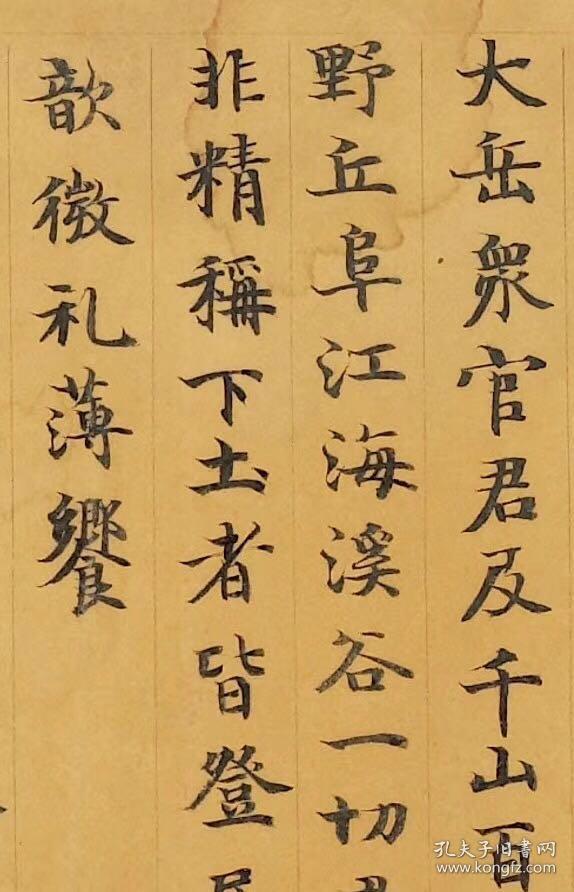 大岳衆官君及千山百
野丘阜江海溪谷一切
非精稱下土者皆登
歆微礼薄饗
孔夫子旧书网
www.kongfz.com